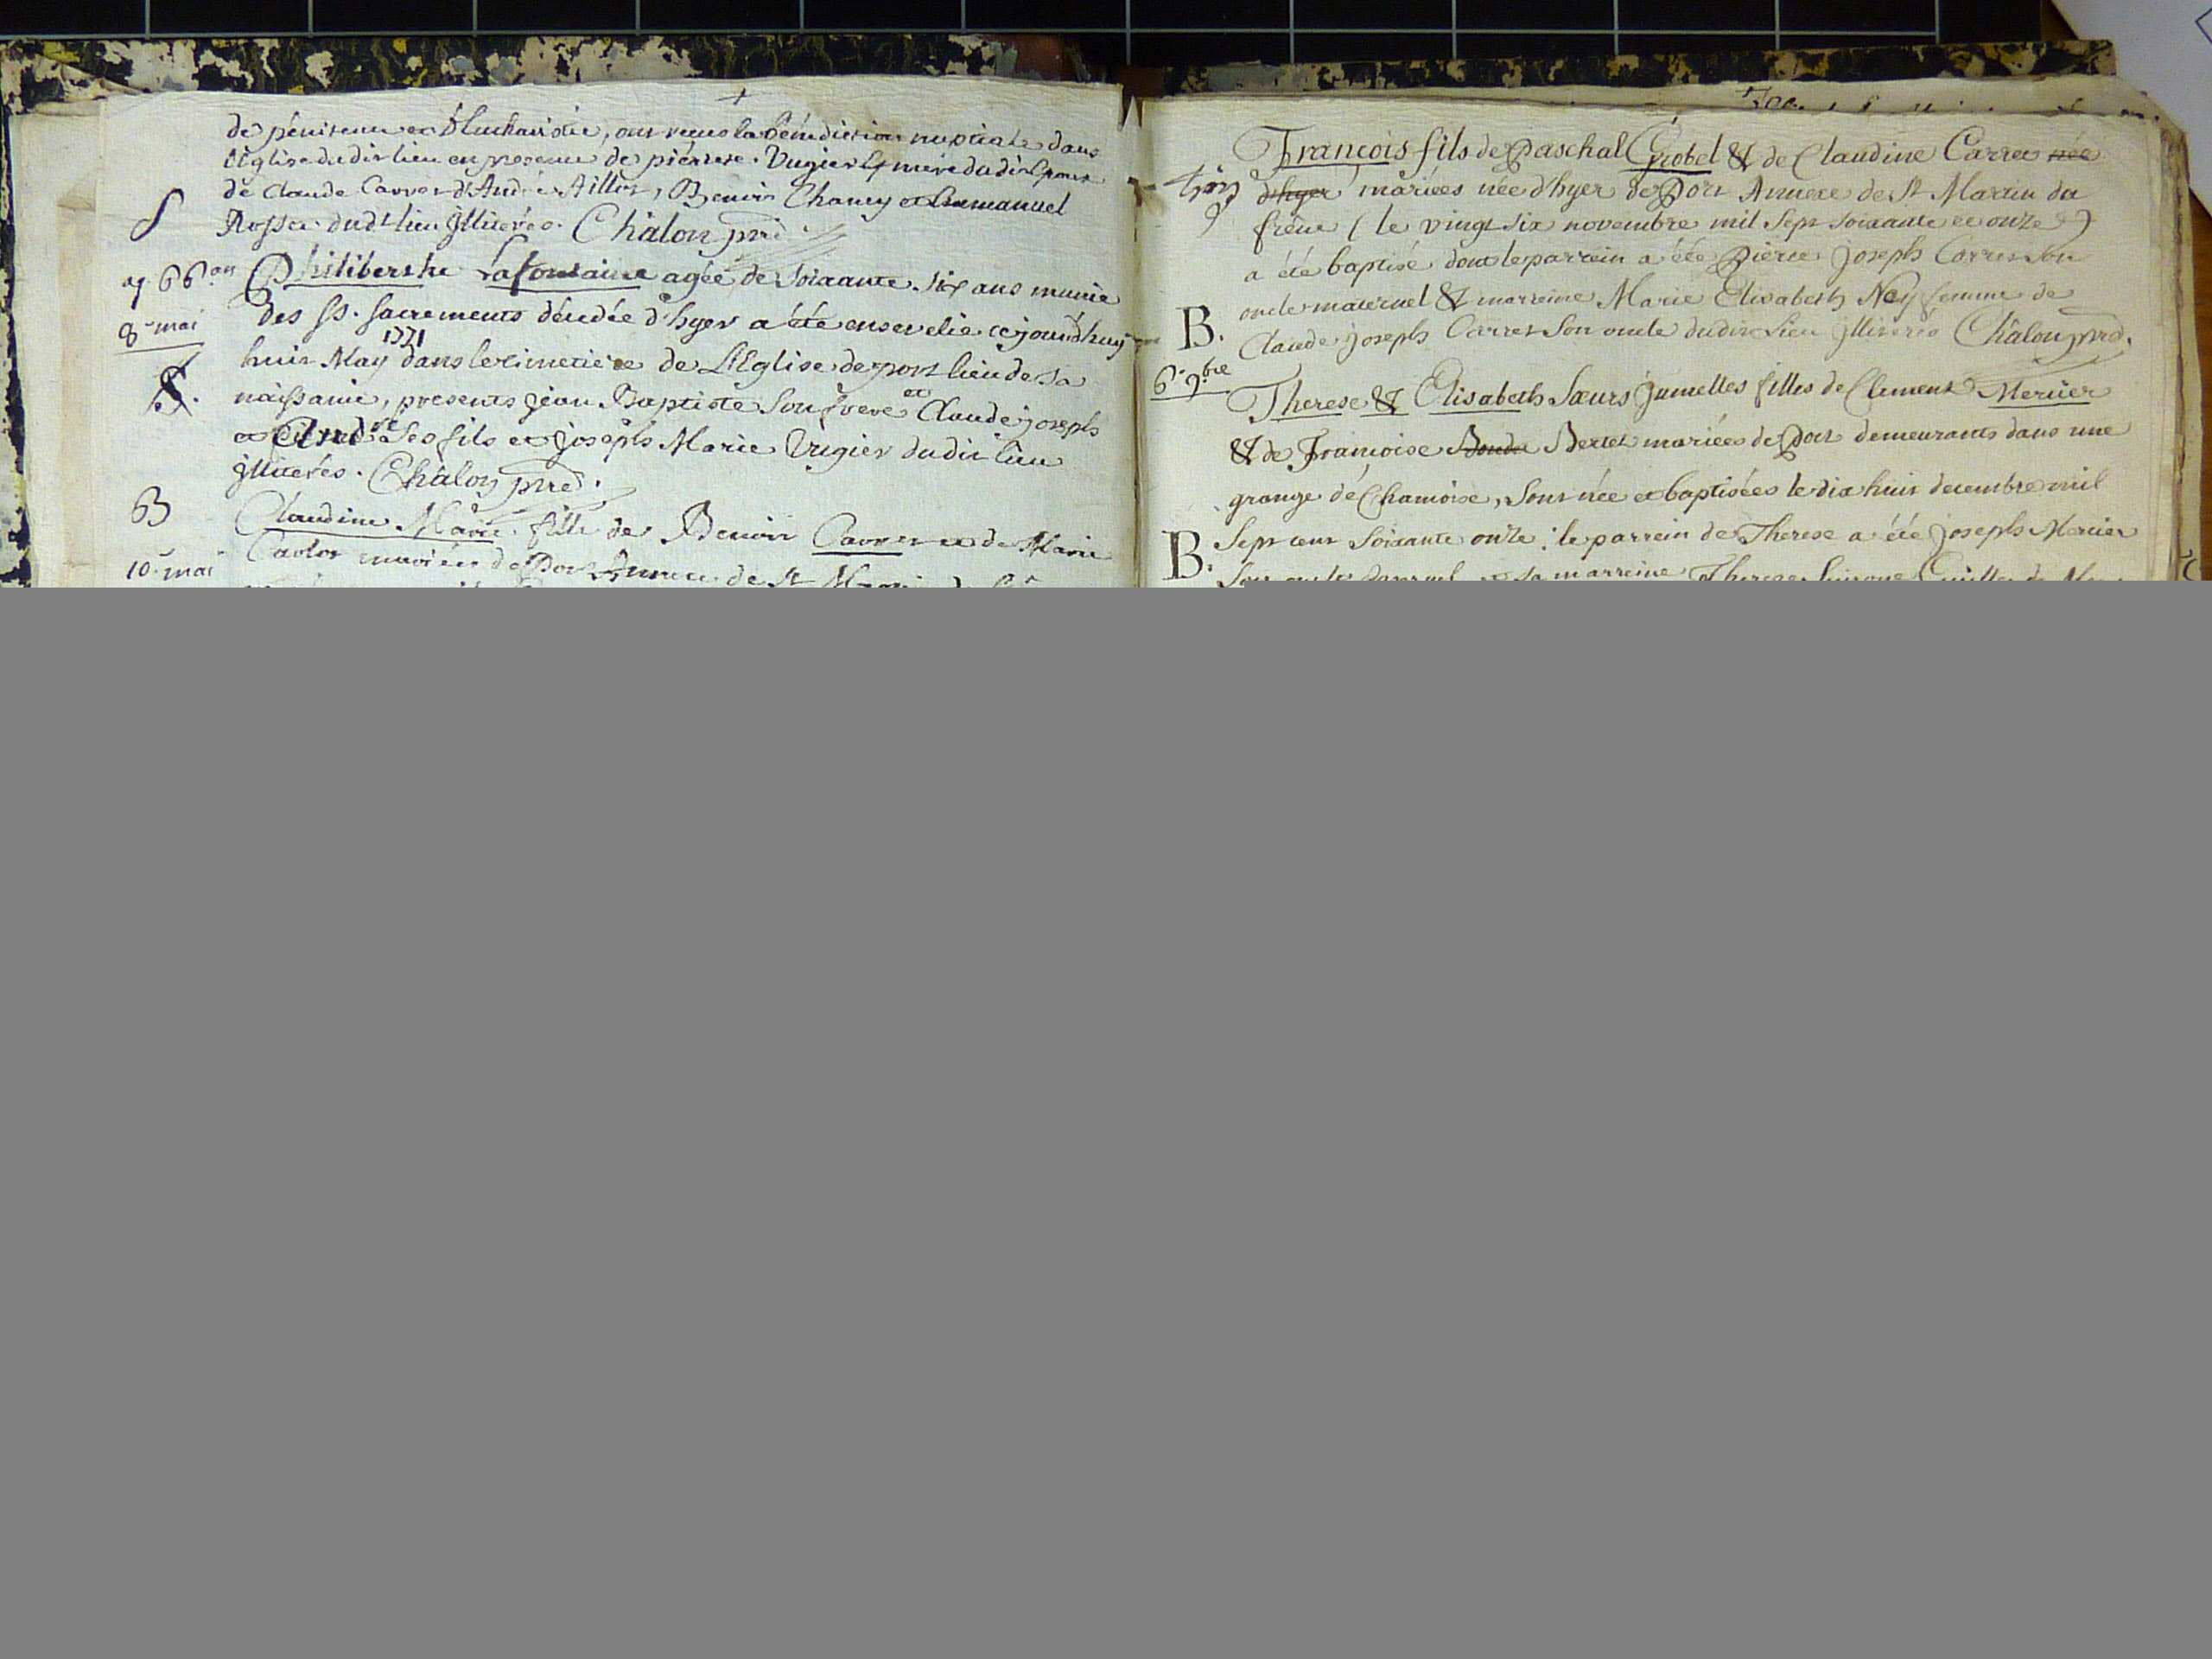 de pénitence et d'Eucharistie, ont reçus la bénédiction nuptiale dans
l'église du dit lieu en presence de piérrese Vugier mere du dit
de Claude Carret d'André Aillot, Benoit Chaney et Emmanuel
Rosset dudt lieu jlliterés. Châlon prré.
S
ag 66 an
Philiberthe Lafontaine agée de soixante six ans munie
8 mai
des SS. sacrements décedée d'hyer a été ensevelie cejourd'huy
1771
huit May dans le cimetiere de L'Eglise de port lieu de sa
S.
naissance, presents jean Baptiste son frere et Claude joseph
et André ses fils et joseph Marie Vugier dudit lieu
jlliterés. Châlon prré.
B
Claudine Marie fille de Benoit Carret et de Marie
10 mai
mariés de Port Annexe de St Martin du
François fils de Paschal Grobel & de Claudine Carret née
d'hyer mariées née d'hyer de Port Annexe de St Martin du
frêne ( le vingt six novembre mil sept soixante et onze )
a été baptisé dont le parrein a été Pierre joseph Carret son
oncle maternel & marreine Marie Elisabeth Ney femme de
B.
Claude joseph Carret son oncle dudit Lieu jlliterés Châlon prré.
Therese & Elisabeth Sœurs jumelles filles de Clement Mercier
& de Françoise Bertet mariées de Port demeurants dans une
grange de Chamoise, sont née et baptisées le dix huit decembre mil
B.
Sept cent soixante onze : le parrein de Therese a été joseph Mercier
son oncle paternel et sa marreine Therese